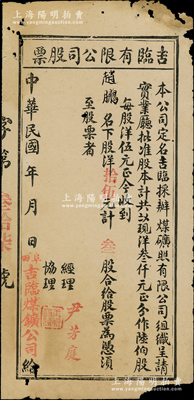 上海陽明
吉臨有限公司股票
本公司定名吉臨採辦煤礦股有限公司組織呈請
實業廳批准股本計共必現洋叁仟元正分作陸伯股
每股洋伍元正今收到
隨鵬名下股洋拾伍元計叁股合給股票為憑須
至股票者
經理 尹芳庭
協理
吉臨煤鑛公司給
中華民國 年 月 日
字第 號
上海陽明